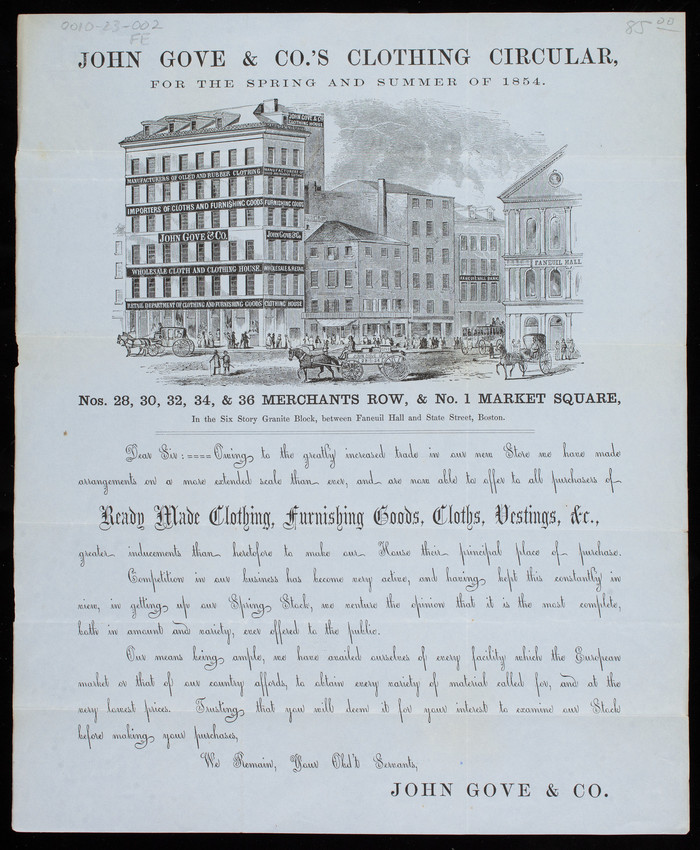 0010-23-002
FE
85 00
JOHN GOVE & CO.'S CLOTHING CIRCULAR,
FOR THE SPRING AND SUMMER OF 1854.
JOHN GOVE & Co
CLOTHING HOUSE
MANUFACTURERS OF OILED AND RUBBER CLOTHING
MANUFACTURERS
IMPORTERS OF CLOTHS AND FURNISHING GOODS
FURNISHING GOODS
JOHN GOVE & CO.
JOHN GOVE & Co.
WHOLESALE CLOTH AND CLOTHING HOUSE.
WHOLESALE & RETAIL
RETAIL DEPARTMENT OF CLOTHING AND FURNISHING GOODS
CLOTHING HOUSE
FANEUIL HALL BANK
FANEUIL HALL
Nos. 28, 30, 32, 34, & 36 MERCHANTS ROW, & No. 1 MARKET SQUARE,
In the Six Story Granite Block, between Faneuil Hall and State Street, Boston.
Dear Sir: ==== Owing to the greatly increased trade in our new Store we have made
arrangements on a more extended scale than ever, and are now able to offer to all purchasers of
Ready Made Clothing, Furnishing Goods, Cloths, Vestings, &c.,
greater inducements than heretofore to make our House their principal place of purchase.
Competition in our business has become very active, and having kept this constantly in
view, in getting up our Spring Stock, we venture the opinion that it is the most complete,
both in amount and variety, ever offered to the public.
Our means being ample, we have availed ourselves of every facility which the European
market or that of our country affords, to obtain every variety of material called for, and at the
very lowest prices. Trusting that you will deem it for your interest to examine our Stock
before making your purchases,
We Remain, Your Obd't Servants,
JOHN GOVE & CO.